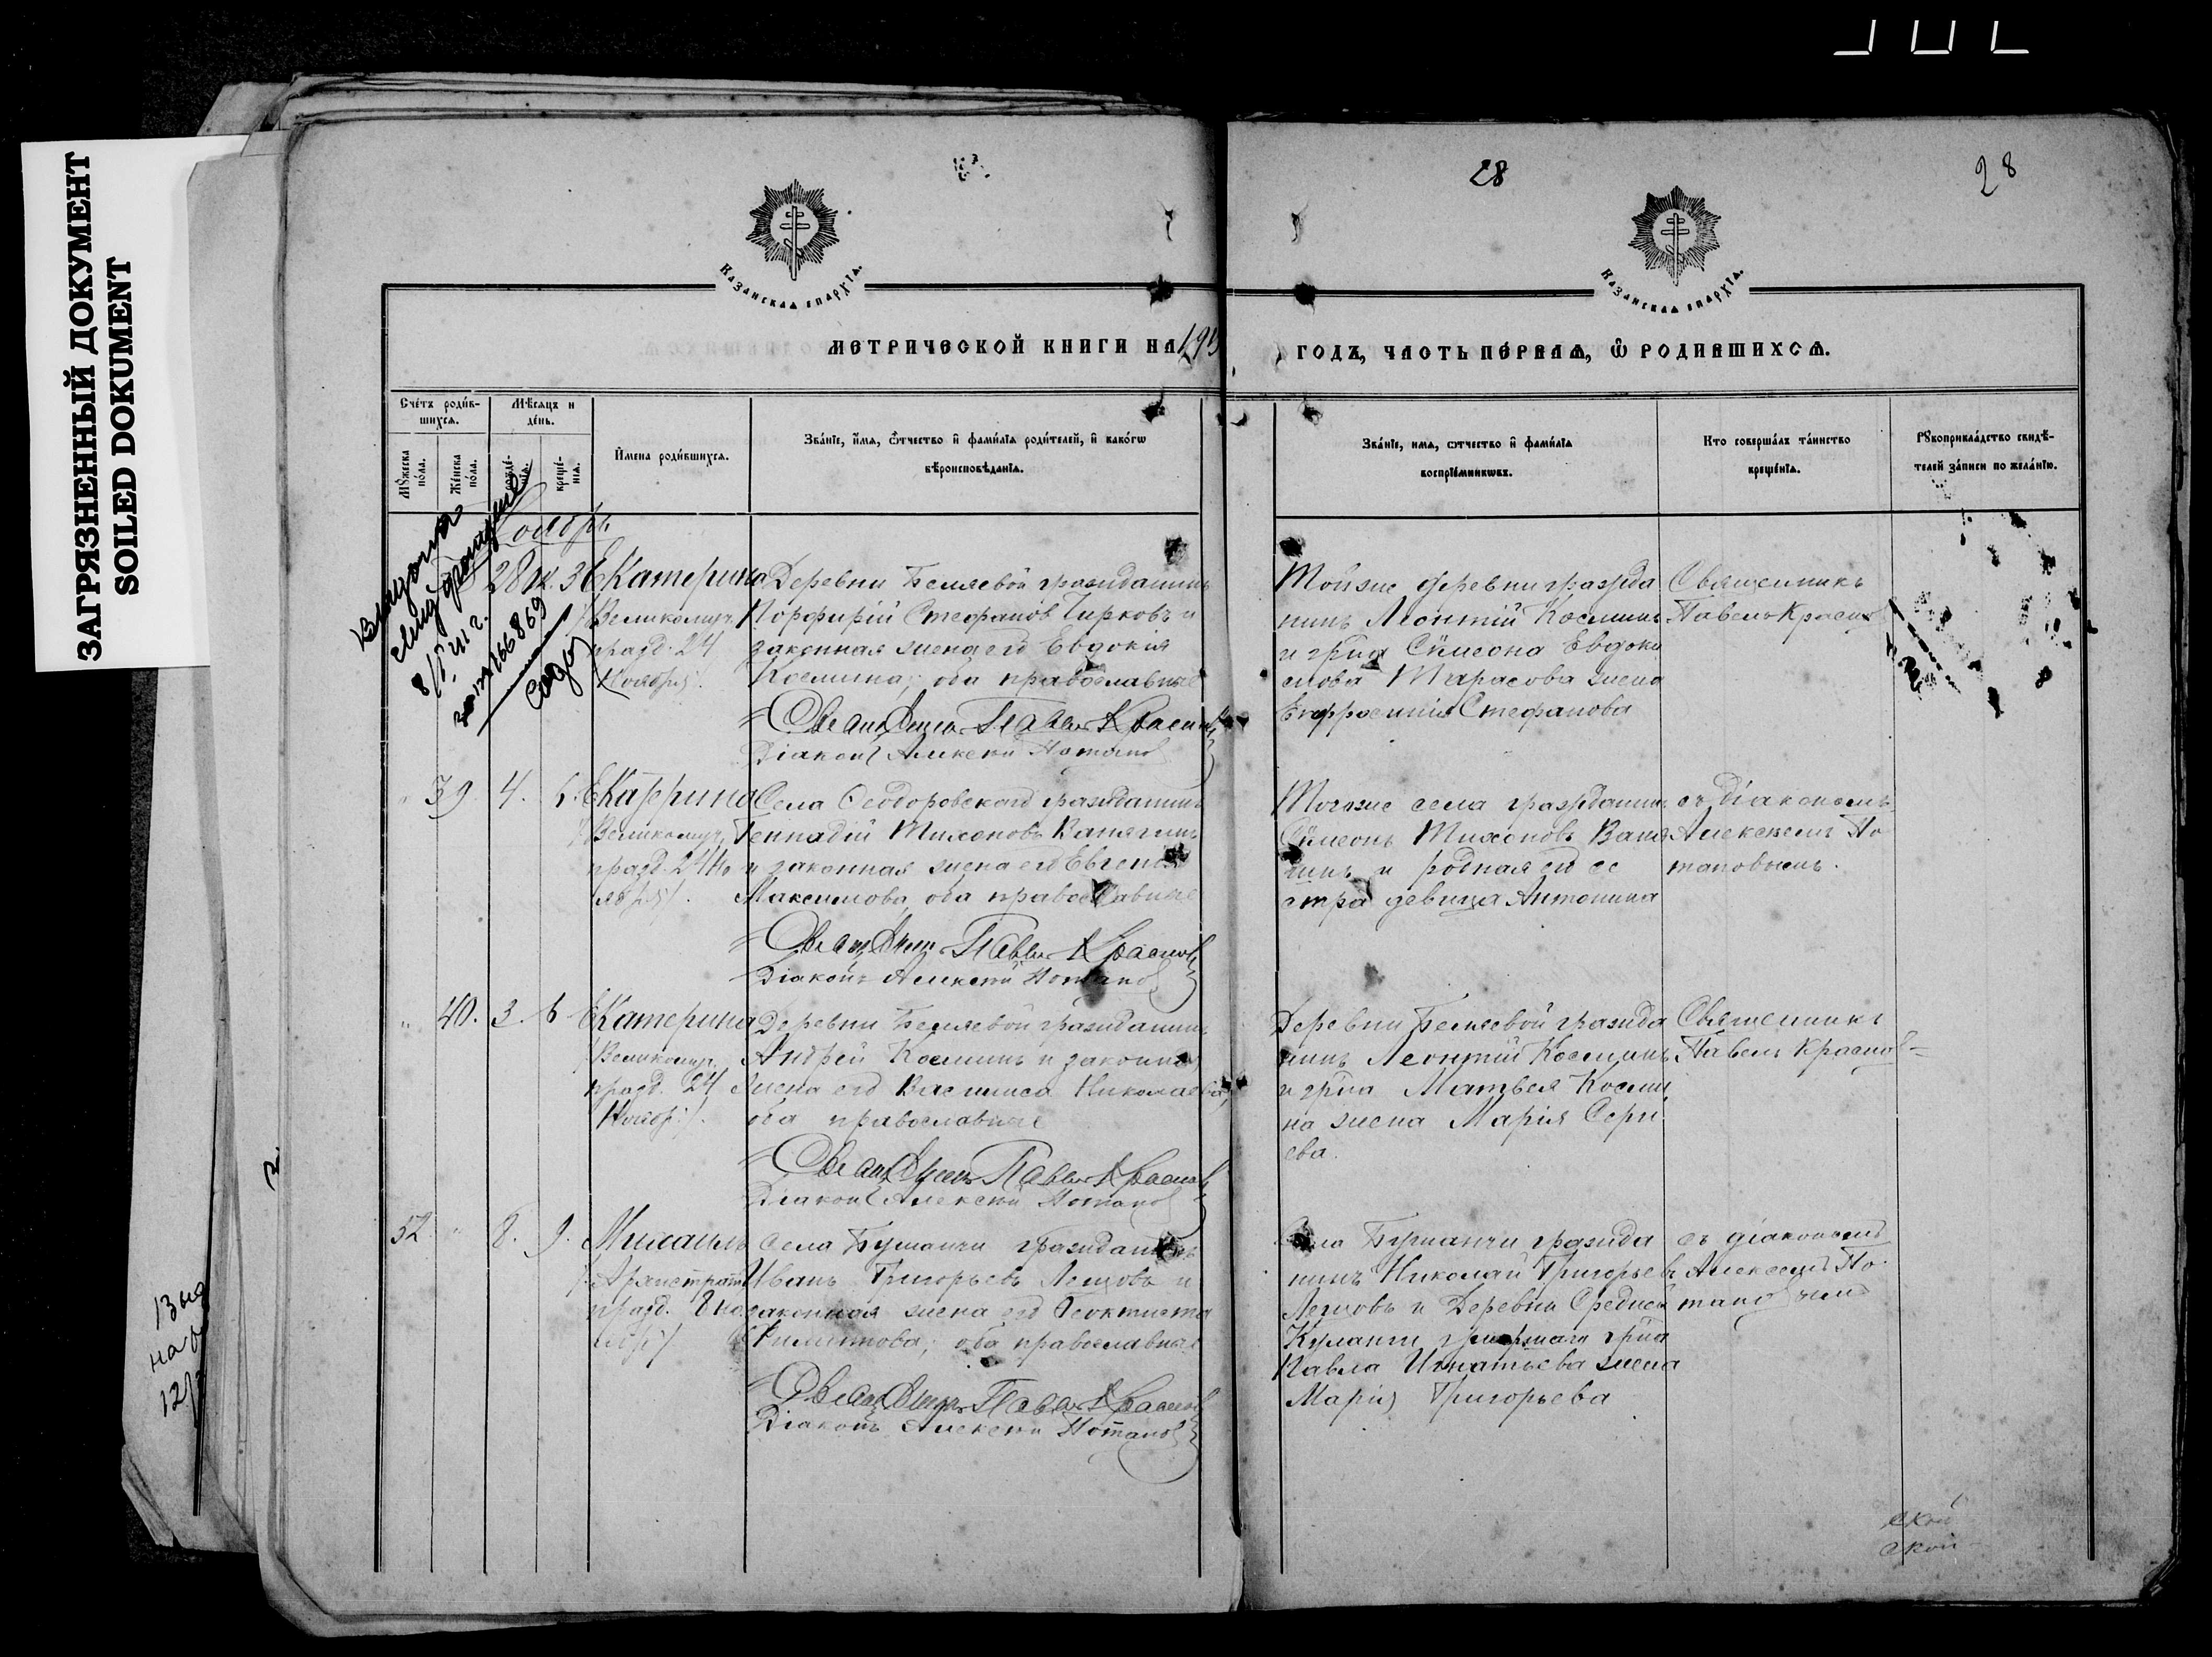 ЗАГРЯЗНЕННЫЙ ДОКУМЕНТ
SOILED DOKUMENT
28
28
Казанская епархїа.
Казанская епархїа.
МЕТРИЧЕСКОЙ КНИГИ НА 191
ГОДЪ, ЧАСТЬ ПЕРВАЯ, Ѿ РОДИВШИХСЯ.
Счетъ родив-
шихся.
Мѣсяцъ и
день.
Мужеска
пола.
Женска
пола.
рожде-
нія.
креще-
нія.
Имена родившихся.
Званіе, имя, ѿтчество и фамилія родителей, и какогѡ
вѣроисповѣданія.
Званіе, имя, отчество и фамилія
воспріемникѡвъ.
Кто совершалъ таинство
крещенія.
Рукоприкладство свидѣ-
телей записи по желанію.
Ноябрь
28
Екатерина
Великомуч.
празд. 24
Ноября
Деревни Беляевой гражданинъ
Порфирій Стефановъ Чирковъ и
законная жена его Евдокія
Космина; оба православные
Священникъ Павелъ Краснов
Діаконъ Алексей Потапов
Тойже деревни гражда
нинъ Леонтій Космин
и гр-на Сѵмеона Евдоки
мова Тарасова жена
Евфросинія Стефанова
Священникъ
Павелъ Краснов
39 4. Екатерина
Великомуч.
празд. 24 Но
ября
Села Ѳеодоровскаго гражданинъ
Геннадій Тихоновъ Ванягинъ
и законная жена его Евгенія
Максимова, оба православные
Священникъ Павелъ Краснов
Діаконъ Алексей Потапов
Тогоже села гражданин
Сѵмеонъ Тихоновъ Ваня
гинъ и родная его се
стра девица Антонина
съ діакономъ
Алексеемъ По
таповымъ.
40. 3. 6 Екатерина
Великомуч.
празд. 24
Ноябр.
Деревни Беляевой гражданинъ
Андрей Косминъ и законная
жена его Василиса Николаева,
оба православные
Священникъ Павелъ Краснов
Діаконъ Алексей Потапов
Деревни Беляевой гражда
нинъ Леонтій Косминъ
и гр-на Матвея Косми
на жена Марія Серги
ева.
Священникъ
Павелъ Краснов
52 8. 9. Михаилъ
Архистрат.
празд. 8 но
ября
Села Бурманчи гражданинъ
Иванъ Григорьевъ Лещовъ и
законная жена его Ѳеоктиста
Филиппова; оба православные
Священникъ Павелъ Краснов
Діаконъ Алексей Потапов
Села Бурманчи гражда
нинъ Николай Григорьев
Лещовъ и Деревни Средней
Куланги гр-на
Павла Игнатьева жена
Марія Григорьева
съ діакономъ
Алексеемъ По-
тановымъ